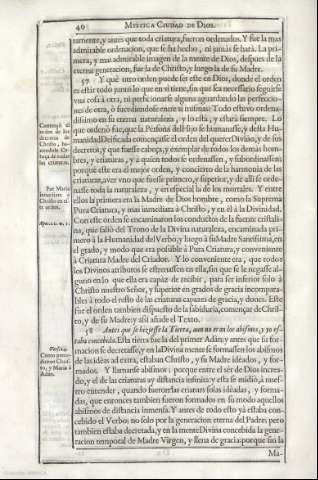 40 MYSTICA CIUDAD DE DIOS.
tamente, y antes que toda criatura, fueron ordenados. Y fue la mas
admirable ordenacion, que se ha hecho, ni jamàs se harà. La pri-
mera, y mas admirable imagen de la mente de Dios, despues de la
eterna generacion, fue la de Christo, y luego la de su Madre.
57. Y què otro orden puede ser este en Dios, donde el orden
es estàr todo junto lo que en sì tiene, sin que sea necessario seguirse
vna cosa à otra, ni perficionarse alguna aguardando las perfeccio-
nes de otra, ò sucediendose entre sì mismas? Todo estuvo ordena-
dissimo en su eterna naturaleza, y lo està, y estarà siempre. Lo
que ordenò fue, que la Persona del Hijo se humanasse, y desta Hu-
manidad Deificada començasse el orden del querer Divino, y de sus
decretos, y que fuesse cabeça, y exemplar de todos los demàs hom-
bres, y criaturas, y à quien todos se ordenassen, y subordinassen;
porque este era el mejor orden, y concierto de la harmonia de las
criaturas, aver vno que fuesse primero, y superior, y de allì se orde-
nasse toda la naturaleza, y en especial la de los mortales. Y entre
ellos la primera era la Madre de Dios hombre, como la Suprema
Pura Criatura, y mas inmediata à Christo, y en èl à la Divinidad.
Con este orden se encaminaron los conductos de la fuente cristali-
na, que saliò del Trono de la Divina naturaleza, encaminada pri-
mero à la Humanidad del Verbo, y luego à su Madre Santissima, en
el grado, y modo que era possible à Pura Criatura, y conveniente
à Criatura Madre del Criador. Y lo conveniente era, que todos
los Divinos atributos se estrenassen en ella, sin que se le negasse al-
guno en lo que ella era capaz de recibir, para ser inferior solo à
Christo nuestro Señor, y superior en grados de gracia incompara-
bles à todo el resto de las criaturas capaces de gracia, y dones. Este
fue el orden tambien dispuesto de la sabiduria, començar de Chris-
to, y de su Madre: y assi añade el Texto.
58 Antes que se hiziesse la Tierra, aun no eran los abismos, y yo es-
taba concebida. Esta tierra fue la del primer Adàn; y antes que su for-
macion se decretasse, y en la Divina mente se formassen los abismos
de las idèas ad extra, estaban Christo, y su Madre ideados, y for-
mados. Y llamanse abismos: porque entre el sèr de Dios increa-
do, y el de las criaturas ay distancia infinita: y esta se midiò, à nues-
tro entender, quando fueron las criaturas solas idèadas, y forma-
das, que entonces tambien fueron formados en su modo aquellos
abismos de distancia inmensa. Y antes de todo esto yà estaba con-
cebido el Verbo, no solo por la generacion eterna del Padre; pero
tambien estaba decretada, y en la mente Divina concebida la gene-
racion temporal de Madre Virgen, y llena de gracia: porque sin la
Ma-